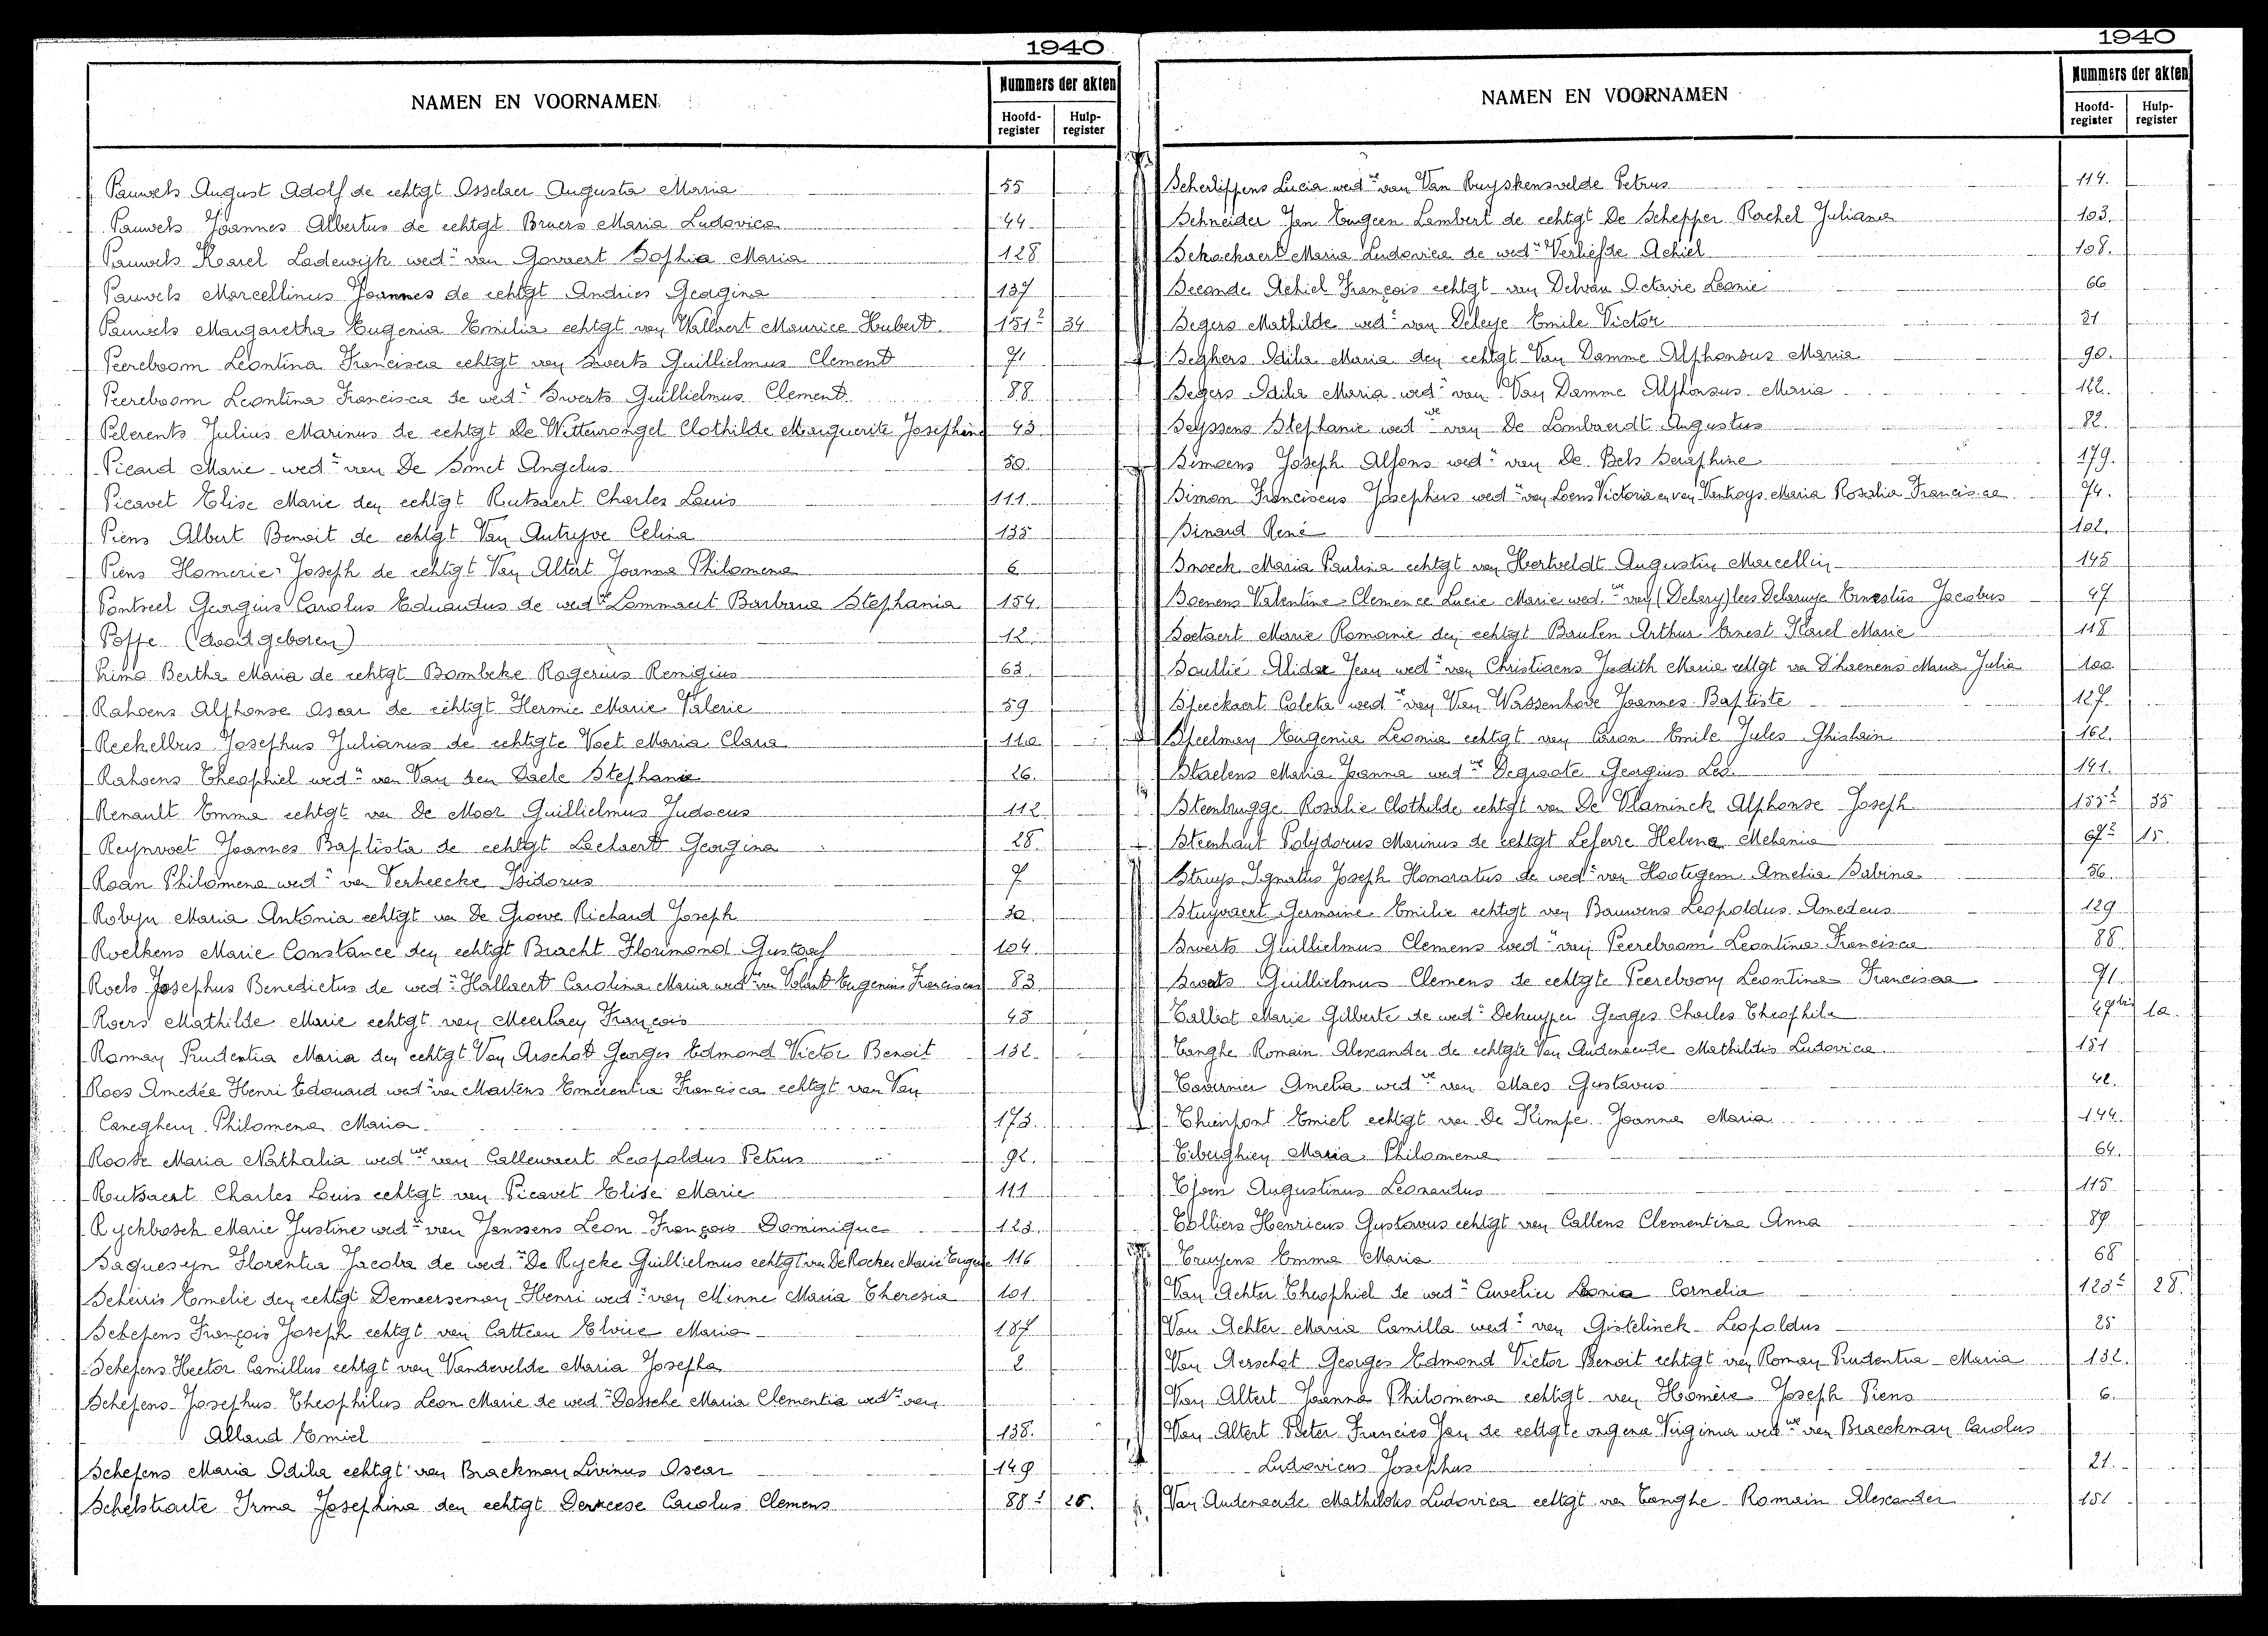 1940
NAMEN EN VOORNAMEN
Nummers der akten
Hoofd-register
Hulp-register
Pauwels August Adolf de echtgt Osselaer Augusta Maria 55
Pauwels Joannes Albertus de echtgt Bruers Maria Ludovica 44
Pauwels Karel Lodewijk wedr van Govaert Sophia Maria 128
Pauwels Marcellinus Joannes de echtgt Andries Georgina 137
Pauwels Margaretha Eugenia Emilia echtgt van Wallaert Maurice Hubert 151² 34
Peereboom Leontina Francisca echtgt van Swerts Guillielmus Clement 71
Peereboom Leontina Francisca de wedr Swerts Guillielmus Clement 88
Pelerents Julius Marinus de echtgt De Wittewrongel Clothilde Marguerite Josephine 43
Picard Marie wedr van De Smet Angelus 50.
Picavet Elise Marie den echtgt Rutsaert Charles Louis 111
Piens Albert Benoit de echtgt Van Autryve Celina 135
Piens Homerie Joseph de echtgt Van Altert Joanna Philomena 6
Pontseel Georgius Carolus Eduardus de wedwe Lammant Barbara Stephania 154
Poffe (doodgeboren) 12
Prims Bertha Maria de echtgt Bombeke Rogerius Remigius 63.
Rahoens Alphonse Oscar de echtgt Hermie Marie Valerie 59
Reekelbus Josephus Julianus de echtgte Voet Maria Clara 110
Rahoens Theophiel wedr van Van den Daele Stephanie 26.
Renault Emma echtgt van De Moor Guillielmus Judocus 112
Reynvoet Joannes Baptista de echtgt Lechaert Georgina 28.
Roan Philomena wedr van Verheecke Isidorus 7
Robyn Maria Antonia echtgt van De Groeve Richard Joseph 30
Roelkens Marie Constance den echtgt Bracht Florimond Gustaaf 104
Roels Josephus Benedictus de wedr Hallaert Carolina Maria wedr van Volant Eugenius Franciscus 83
Roers Mathilde Marie echtgt van Meerlaen François 45
Roman Prudentia Maria den echtgt Van Arschot Georges Edmond Victor Benoit 132
Roos Amedée Henri Edouard wedr van Martens Emerentia Francisca echtgt van Van
Caneghem Philomena Maria 173
Roose Maria Nathalia wedwe van Callewaert Leopoldus Petrus 92.
Rutsaert Charles Louis echtgt van Picavet Elise Marie 111
Ryckbosch Marie Justine wedr van Janssens Leon François Dominique 123.
Saquesyn Florentia Jacoba de wedr De Rycke Guillielmus echtgt van De Rocker Marie Eugenie 116
Scheiris Emelie den echtgt Demeerseman Henri wedr van Minne Maria Theresia 101
Schepens François Joseph echtgt van Catteau Elvire Maria 187
Schepens Hector Camillus echtgt van Vandevelde Maria Josepha 2
Schepens Josephus Theophilus Leon Marie de wedr Dossche Maria Clementia wedr van
Alland Emiel 138.
Schepens Maria Odilia echtgt van Braekman Livinus Oscar 149
Schelstraete Irma Josephina den echtgt Derreese Carolus Clemens 88² 26.
1940
NAMEN EN VOORNAMEN
Nummers der akten
Hoofd-register
Hulp-register
Scherlippens Lucia wedwe van Van Ruyskensvelde Petrus 114.
Schneider Jan Eugeen Lambert de echtgt De Schepper Rachel Juliana 103.
Schockaert Maria Ludovica de wedr Verliefde Achiel 108.
Seconde Achiel François echtgt van Delvau Octavie Leonie 66
Segers Mathilde wedr van Deleye Emile Victor 31
Seghers Odila Maria den echtgt Van Damme Alphonsus Maria 90.
Segers Odila Maria wedr van Van Damme Alphonsus Maria 122.
Seyssens Stephanie wedwe van De Lombaerdt Augustus 82.
Simoens Joseph Alfons wedr van De Bels Seraphine 179.
Simon Franciscus Josephus wedr van Loens Victoria en van Venhoys Maria Rosalia Francisca 74.
Sinard René 102.
Snoeck Maria Paulina echtgt van Hertveldt Augustin Marcellin 145
Soenens Valentine Clemence Lucie Marie wedwe van (Delary) lees Delaruye Ernestus Jacobus 47
Soetaert Marie Romanie den echtgt Baulen Arthur Ernest Karel Marie 118
Soullié Alidor Jean wedr van Christiaens Judith Maria echtgt va D'haenens Maria Julia 100
Speeckaert Coleta wedwe van Van Wassenhove Joannes Baptiste 127
Speelman Eugenia Leonia echtgt van Caron Emile Jules Ghislain 162.
Staelens Maria Joanna wedwe Degroote Georgius Leo 141.
Steenbrugge Rosalie Clothilde echtgt van De Vlaminck Alphonse Joseph 155² 35
Steenhaut Polydorus Marinus de echtgt Lefevre Helena Melania 67² 15.
Struys Ignatius Joseph Honoratus de wedr van Hootegem Amelia Sabina 56
Stuyvaert Germaine Emilie echtgt van Bauwens Leopoldus Amedeus 129
Swerts Guillielmus Clemens wedr van Peereboom Leontina Francisca 88.
Swerts Guillielmus Clemens de echtgte Peereboom Leontina Francisca 71
Talliot Marie Gilberte de wedr Dekuyper Georges Charles Theophile 49bis 10.
Tanghe Romain Alexander de echtgte Van Audenaerde Mathildis Ludovica 151
Tavernier Amelia wedwe van Maes Gustavus 42.
Thienpont Emiel echtgt van De Kimpe Joanna Maria 144
Tiberghien Maria Philomena 64.
Tjoen Augustinus Leonardus 115
Tolliers Henricus Gustavus echtgt van Callens Clementina Anna 89
Truyens Emma Maria 68
Van Achter Theophiel de wedr Cuvelier Leonia Cornelia 123² 28.
Van Achter Maria Camilla wedr van Gistelinck Leopoldus 25
Van Aerschot Georges Edmond Victor Benoit echtgt van Roman Prudentia Maria 132.
Van Altert Joanna Philomena echtgt van Homère Joseph Piens 6.
Van Altert Pieter Francies Jan de echtgte ongena Virginia wedwe van Braeckman Carolus
Ludovicus Josephus 21.
Van Audenaerde Mathildis Ludovica echtgt van Tanghe Romain Alexander 151